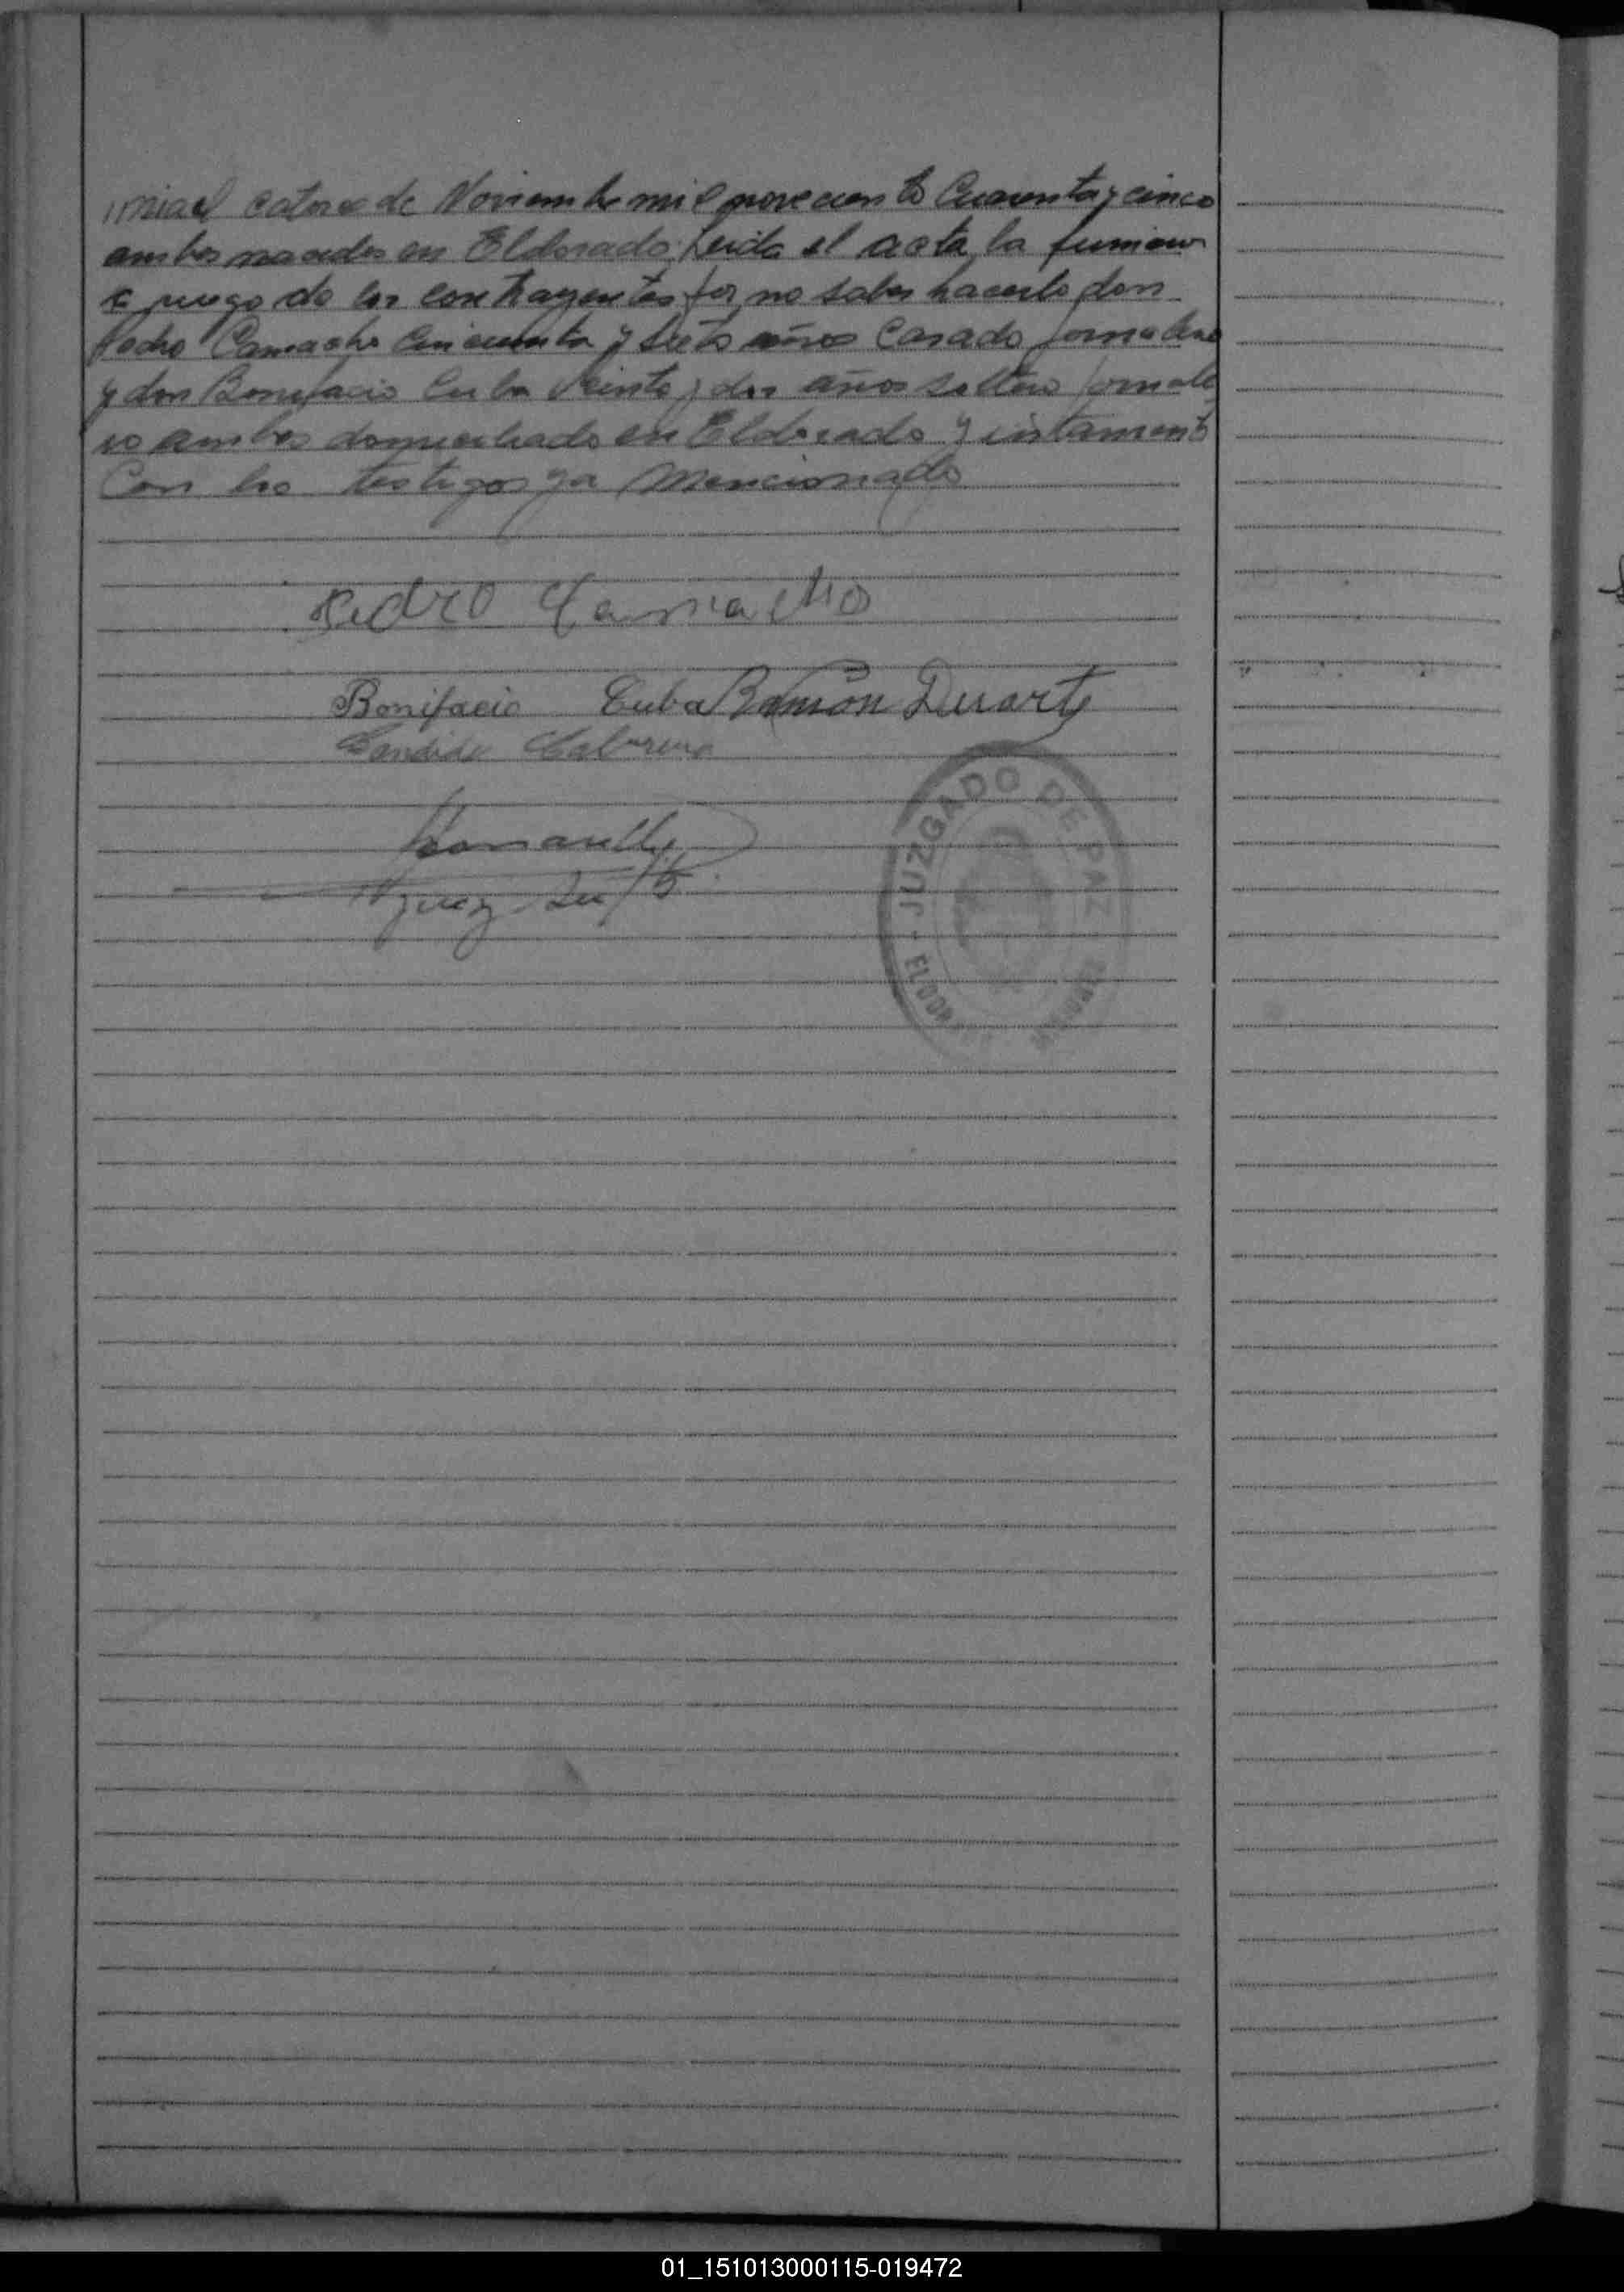 catorce de Noviembre mil novecientos Cuarenta y cinco
ambos nacidos en Eldorado. Leida el acta, la firman
a ruego de los contrayentes por no saber hacerlo don
Pedro Camacho Cincuenta y siete años Casado Jornalero
y don Bonifacio Cuba Veinte y dos años soltero Jornale
ro ambos domiciliado en Eldorado y
Con los testigos ya Mencionado
Pedro Camacho
Bonifacio Cuba Ramón Duarte
Candido Cabrera
Juez
JUZGADO DE PAZ
ELDORADO MISIONES
01_151013000115-019472